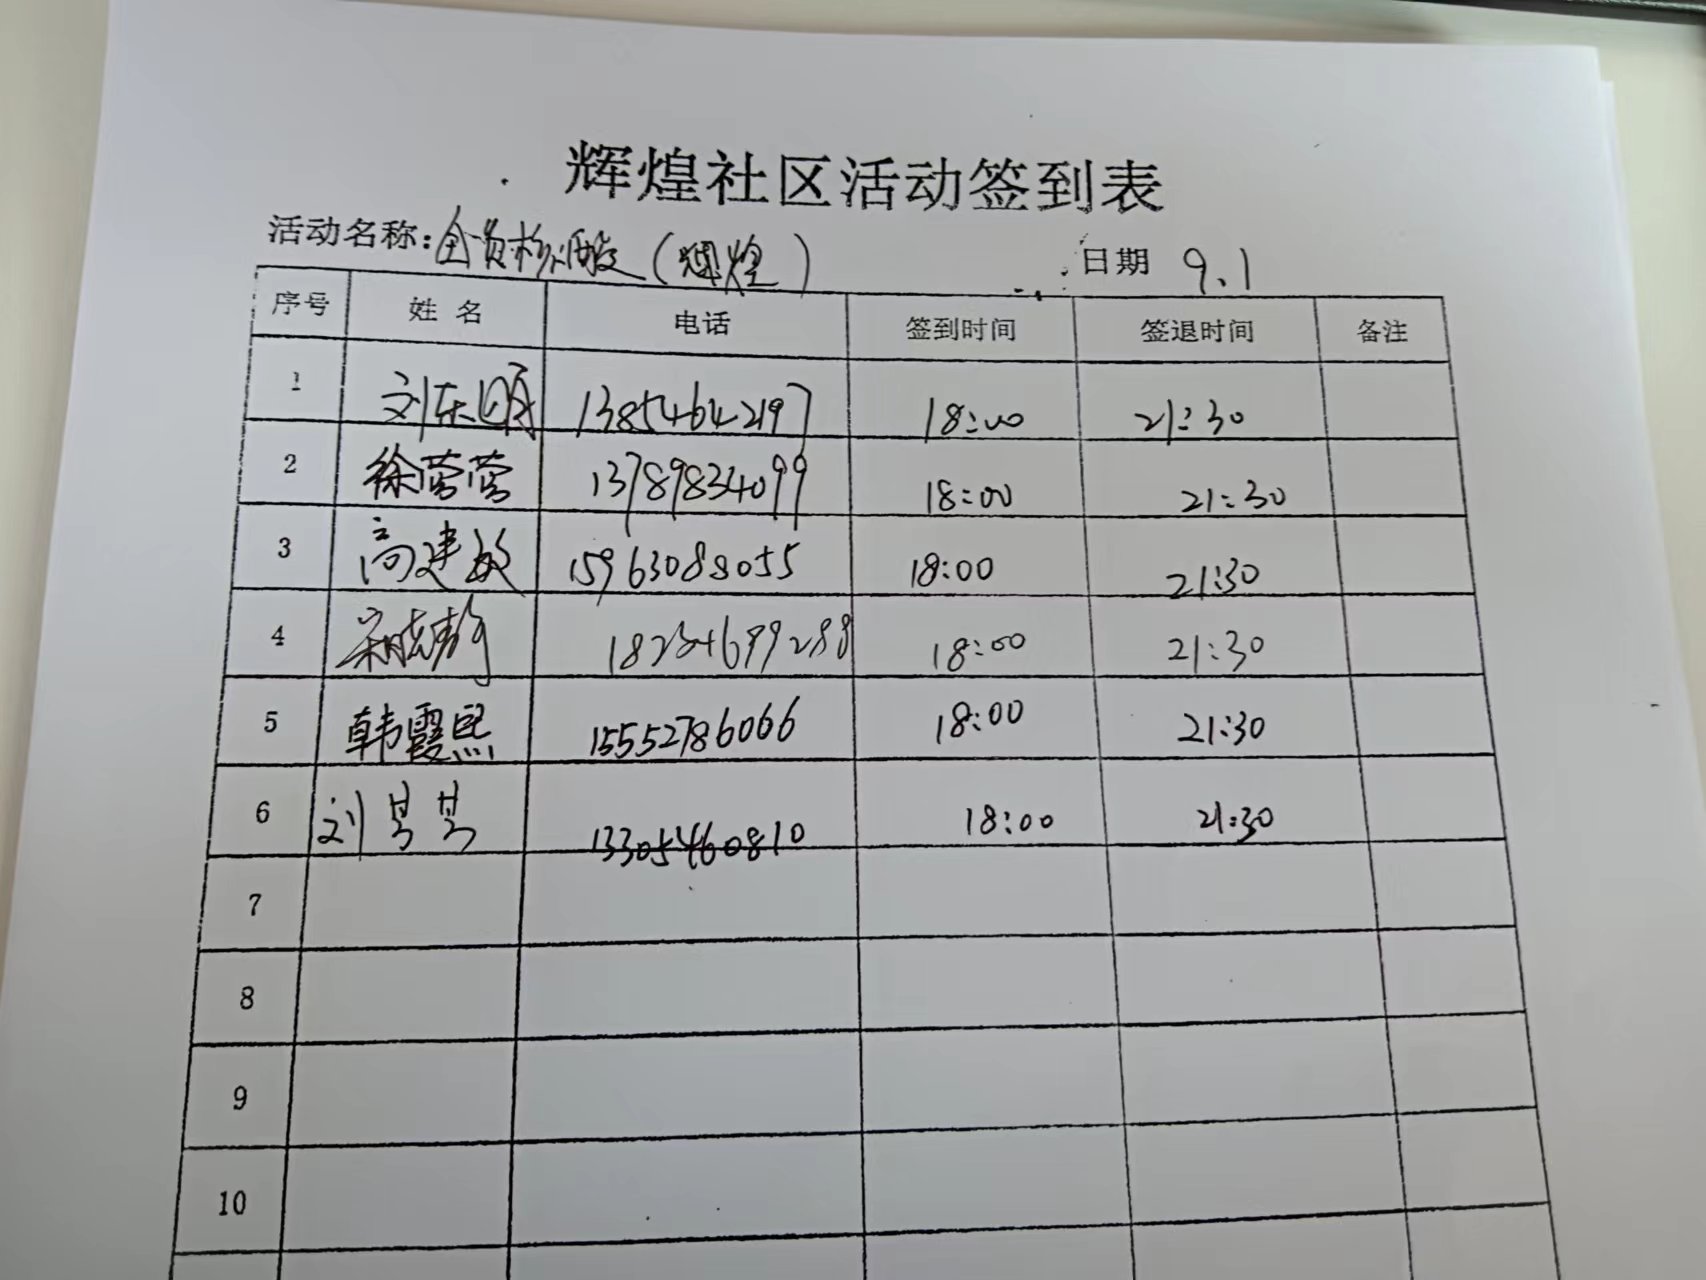 辉煌社区活动签到表
活动名称：全员核酸（辉煌） 日期 9.1
序号 姓名 电话 签到时间 签退时间 备注
1 刘东 13854642197 18:00 21:30
2 徐莹莹 13789834099 18:00 21:30
3 高建敏 15963088055 18:00 21:30
4 18:00 21:30
5 韩霞 15552786066 18:00 21:30
6 刘 13305460810 18:00 21:30
7
8
9
10